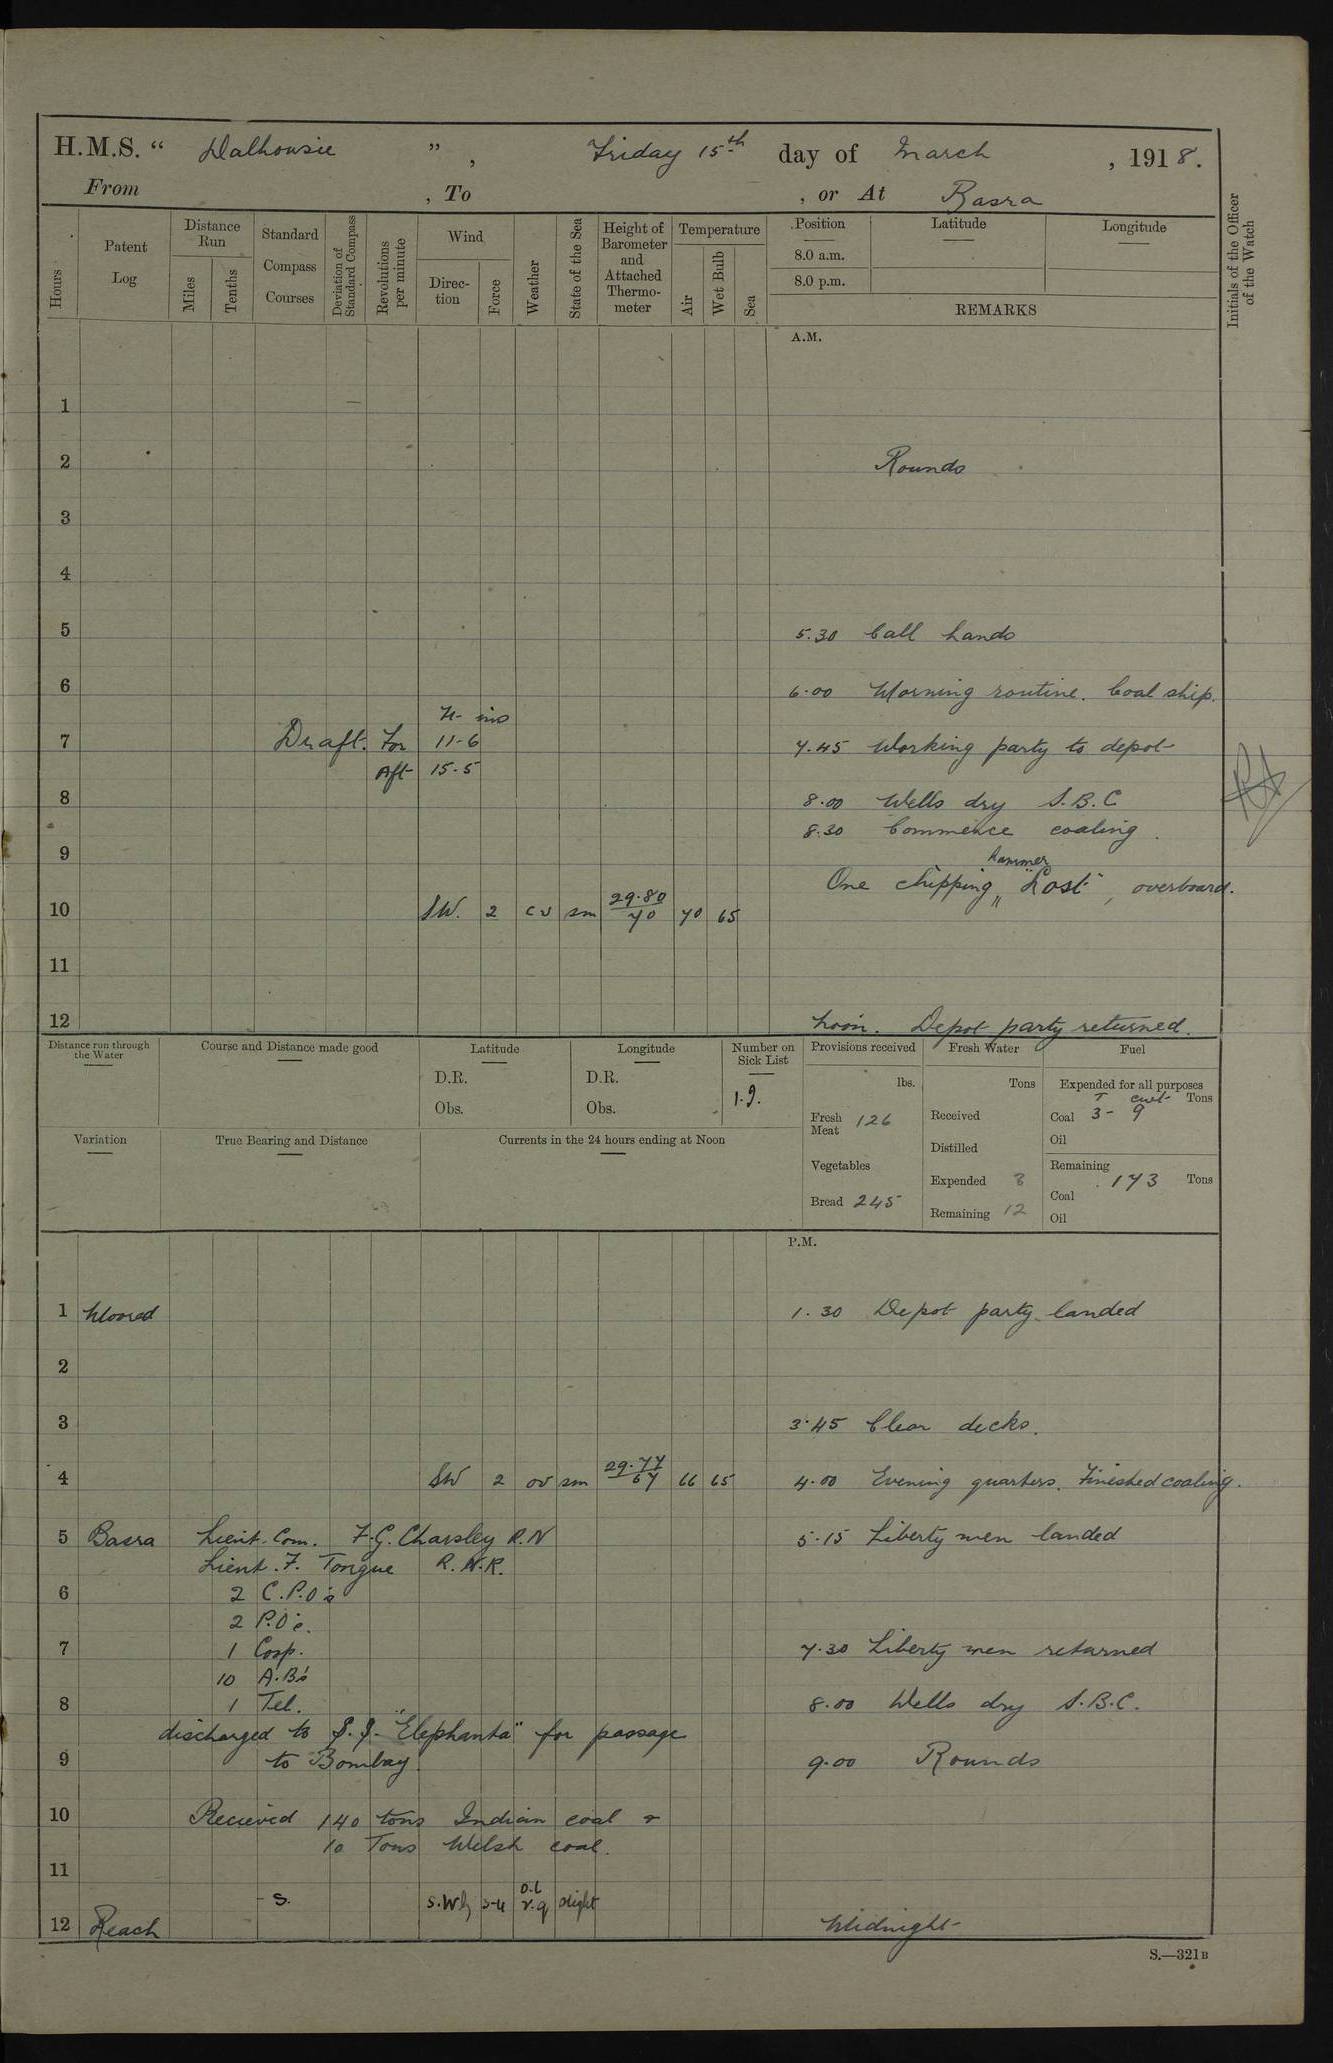 H.M.S. “ Dalhousie ” , Friday 15th day of March , 1918.
From , To , or At Basra
Hours
Patent Log
Distance Run
Miles
Tenths
Standard Compass Courses
Deviation of Standard Compass
Revolutions per minute
Wind
Direction
Force
Weather
State of the Sea
Height of Barometer and Attached Thermometer
Temperature
Air
Wet Bulb
Sea
Position
8.0 a.m.
8.0 p.m.
Latitude
Longitude
REMARKS
Initials of the Officer of the Watch
A.M.
1
2 Rounds
3
4
5 5.30 Call hands
6 6.00 Morning routine. Coal ship.
ins
7 Draft. For 11-6 7.45 Working party to depot
Aft 15-5
8 8.00 Wells dry S.B.C
8.30 Commence coaling.
9
hammer
One chipping " Lost, overboard.
10 SW. 2 sm 29.80/70 70 65
11
12 Noon. Depot party returned.
Distance run through the Water
Course and Distance made good
Latitude
D.R.
Obs.
Longitude
D.R.
Obs.
Number on Sick List
1.9.
Provisions received
lbs.
Fresh Meat 126
Vegetables
Bread 245
Fresh Water
Tons
Received
Distilled
Expended 8
Remaining 12
Fuel
Expended for all purposes
T cwt Tons
Coal 3- 9
Oil
Remaining
Coal 173 Tons
Oil
Variation
True Bearing and Distance
Currents in the 24 hours ending at Noon
P.M.
1 Moored 1.30 Depot party landed
2
3 3.45 Clear decks.
4 SW 2 ov sm 29.77/67 66 65 4.00 Evening quarters. Finished coaling.
5 Basra Lieut. Com. F.G. Charsley R.N 5.15 Liberty men landed
Lieut. F. Tongue R.N.R.
6 2 C.P.O's
2 P.O's.
7 1 Corp. 7.30 Liberty men returned
10 A.B's
8 1 Tel. 8.00 Wells dry S.B.C.
discharged to S.S. "Elephanta" for passage
9 to Bombay. 9.00 Rounds
10 Recieved 140 tons Indian coal &
10 Tons Welsh coal.
11
S. 3-4 slight
12 Reach Midnight
S.—321B